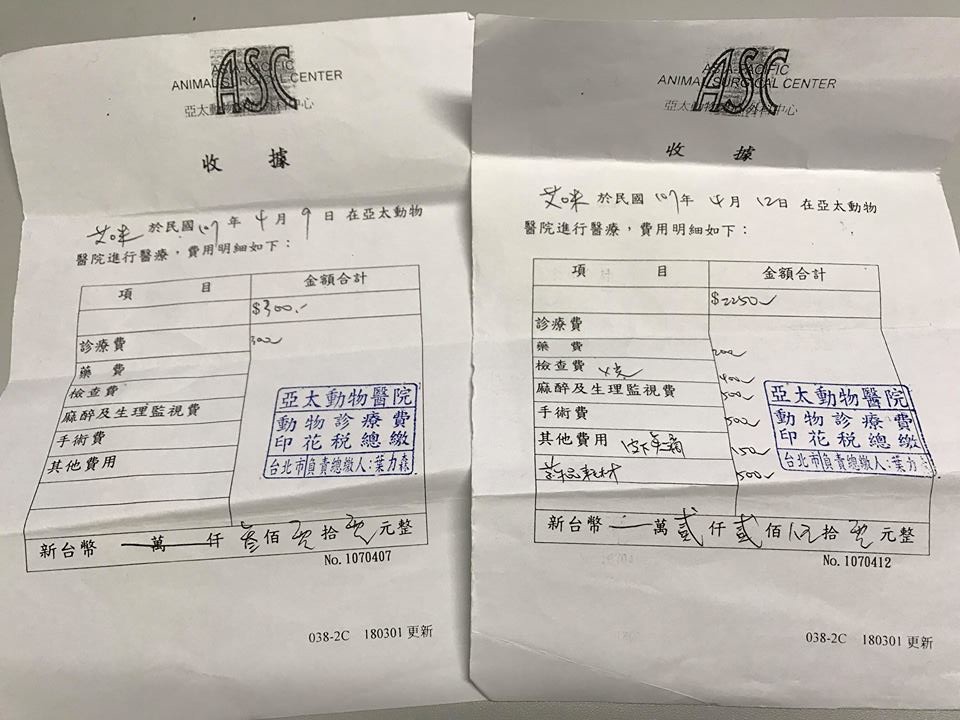 ASC
ANIMAL SURGICAL CENTER
亞太動物外科中心
收 據
艾咪 於民國 107 年 4 月 9 日 在亞太動物
醫院進行醫療，費用明細如下：
項 目 金額合計
$300.-
診療費 300
藥 費
檢查費
麻醉及生理監視費
手術費
其他費用
亞太動物醫院
動物診療費
印花稅總繳
台北市負責總繳人:葉力森
新台幣 一萬 仟 叁佰 零拾 零元整
No. 1070407
038-2C 180301 更新
ASC
ASIA-PACIFIC
ANIMAL SURGICAL CENTER
亞太動物外科中心
收 據
艾咪 於民國 107 年 4 月 12 日 在亞太動物
醫院進行醫療，費用明細如下：
項 目 金額合計
$2250
診療費
藥 費 200
檢查費 400
麻醉及生理監視費 500
手術費 500
其他費用 150
耗材 500
亞太動物醫院
動物診療費
印花稅總繳
台北市負責總繳人:葉力
新台幣 一萬 貳仟 貳佰 伍拾 零元整
No. 1070412
038-2C 180301 更新